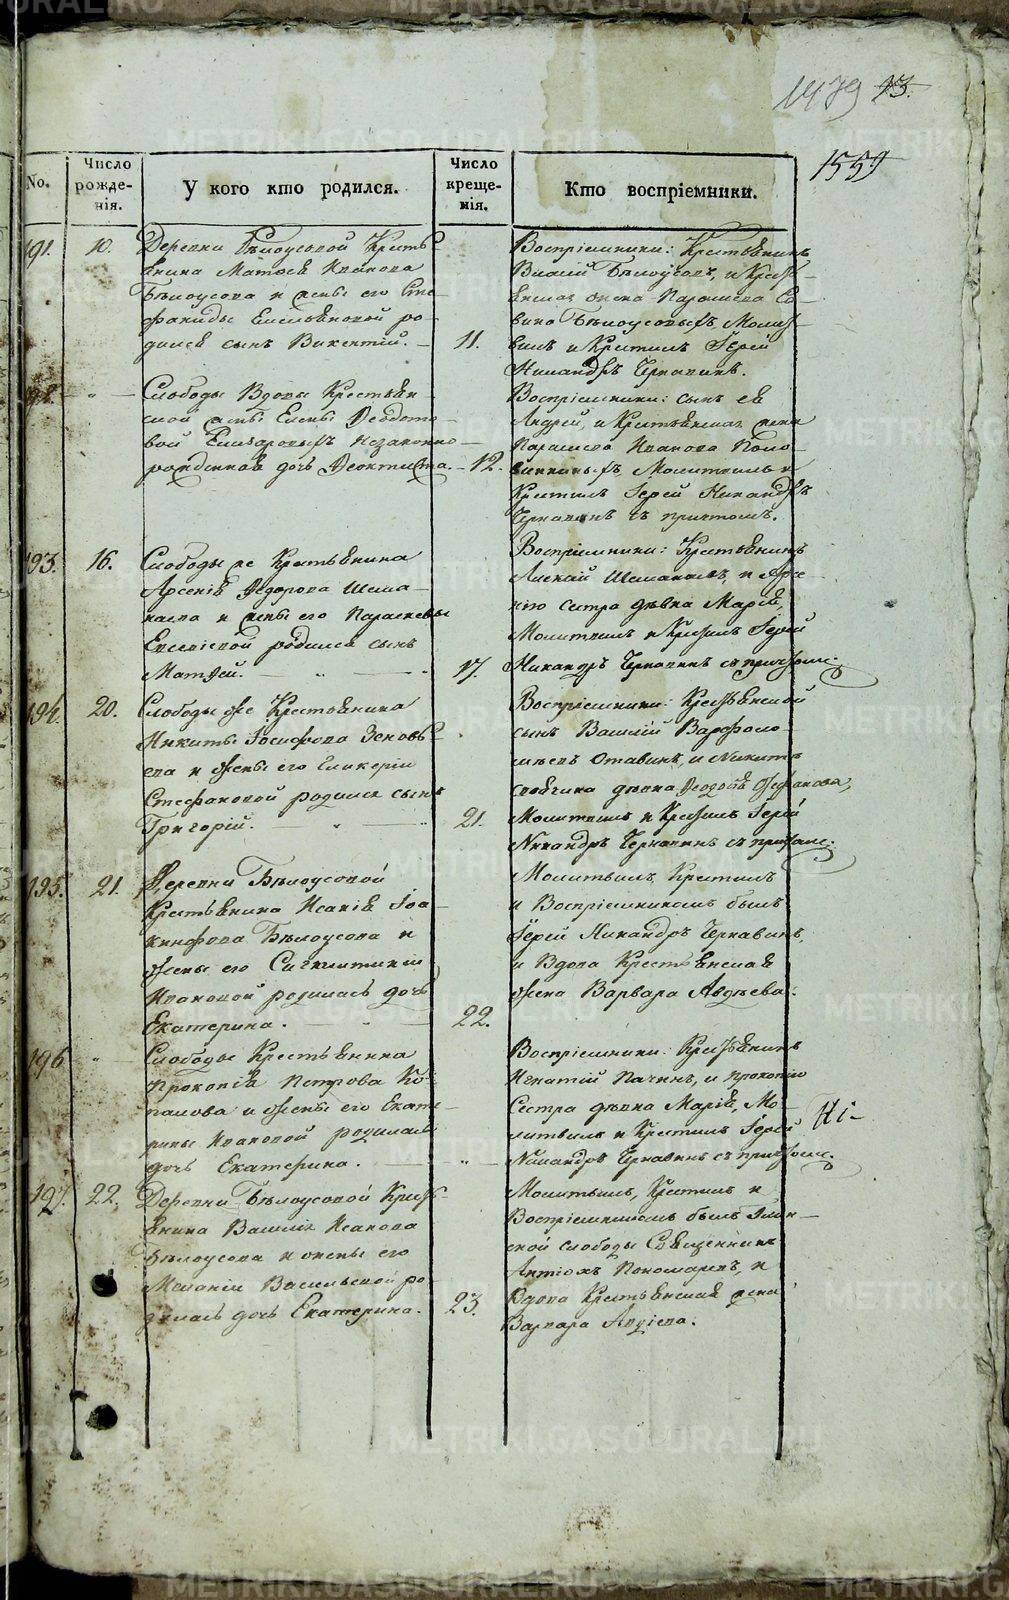 1479 13.
1559
No.
Число рожденія.
У кого кто родился.
Число крещенія.
Кто воспріемники.
191. 10.
Деревни Бѣлоусовой Кресть-
янина Матѳея Иванова
Бѣлоусова и жены его Сте-
фаниды Емельяновой ро-
дился сынъ Викентій. 11.
Воспріемники: Крестьянинъ
Василій Бѣлоусовъ, и Кресть-
янская жена Парасковья Са-
Бѣлоусовыхъ Молит-
вилъ и Крестилъ Іерей
Никандръ Чернавинъ.
Слободы Вдовы Крестьян-
ской жены Елены Ѳеодото-
вой незаконно-
рожденная дочь Ѳеоктиста. 12.
Воспріемники: сынъ ея
Андрей, и Крестьянская жена
Парасковья Иванова Поло-
винкиныхъ, Молитвилъ и
Крестилъ Іерей Никандръ
Чернавинъ съ причтомъ.
193. 16.
Слободы же Крестьянина
Арсенія Ѳедорова Шеша-
кова и жены его Параскевы
родился сынъ
Матѳей. 17.
Воспріемники: Крестьянинъ
Алексій и Арсе-
нію сестра дѣвка Марія,
Молитвилъ и Крестилъ Іерей
Никандръ Чернавинъ съ причтомъ.
194. 20.
Слободы же Крестьянина
Никиты Іосифова Зеновь-
ева и жены его Гликеріи
Стефановой родился сынъ
Григорій. 21.
Воспріемники: Крестьянской
сынъ Василій Варфоло-
меевъ и Никиты
дѣвка
Молитвилъ и Крестилъ Іерей
Никандръ Чернавинъ съ причтомъ.
195. 21.
Деревни Бѣлоусовой
Крестьянина Исакія Іоа-
кинфова Бѣлоусова и
жены его Сигклитикіи
Ивановой родилась дочь
Екатерина. 22.
Молитвилъ, Крестилъ
и Воспріемникомъ былъ
Іерей Никандръ Чернавинъ,
и Вдова Крестьянская
жена Варвара Авдѣева.
196
Слободы Крестьянина
Прокопія Петрова Ко-
палова и жены его Екате-
рины Ивановой родилась
дочь Екатерина.
Воспріемники: Крестьянинъ
Игнатій Пачинъ, и Прокопію
Сестра дѣвка Марія, Мо-
литвилъ и Крестилъ Іерей
Никандръ Чернавинъ съ причтомъ.
197. 22.
Деревни Бѣлоусовой Кресть-
янина Василія Исакова
Бѣлоусова и жены его
Меланіи Васильевой ро-
дилась дочь Екатерина. 23.
Молитвилъ, Крестилъ и
Воспріемникомъ былъ
ской слободы Священникъ
Антіохъ Пономаревъ, и
Вдова Крестьянская жена
Варвара Авдіева.
METRIKI.GASO-URAL.RU